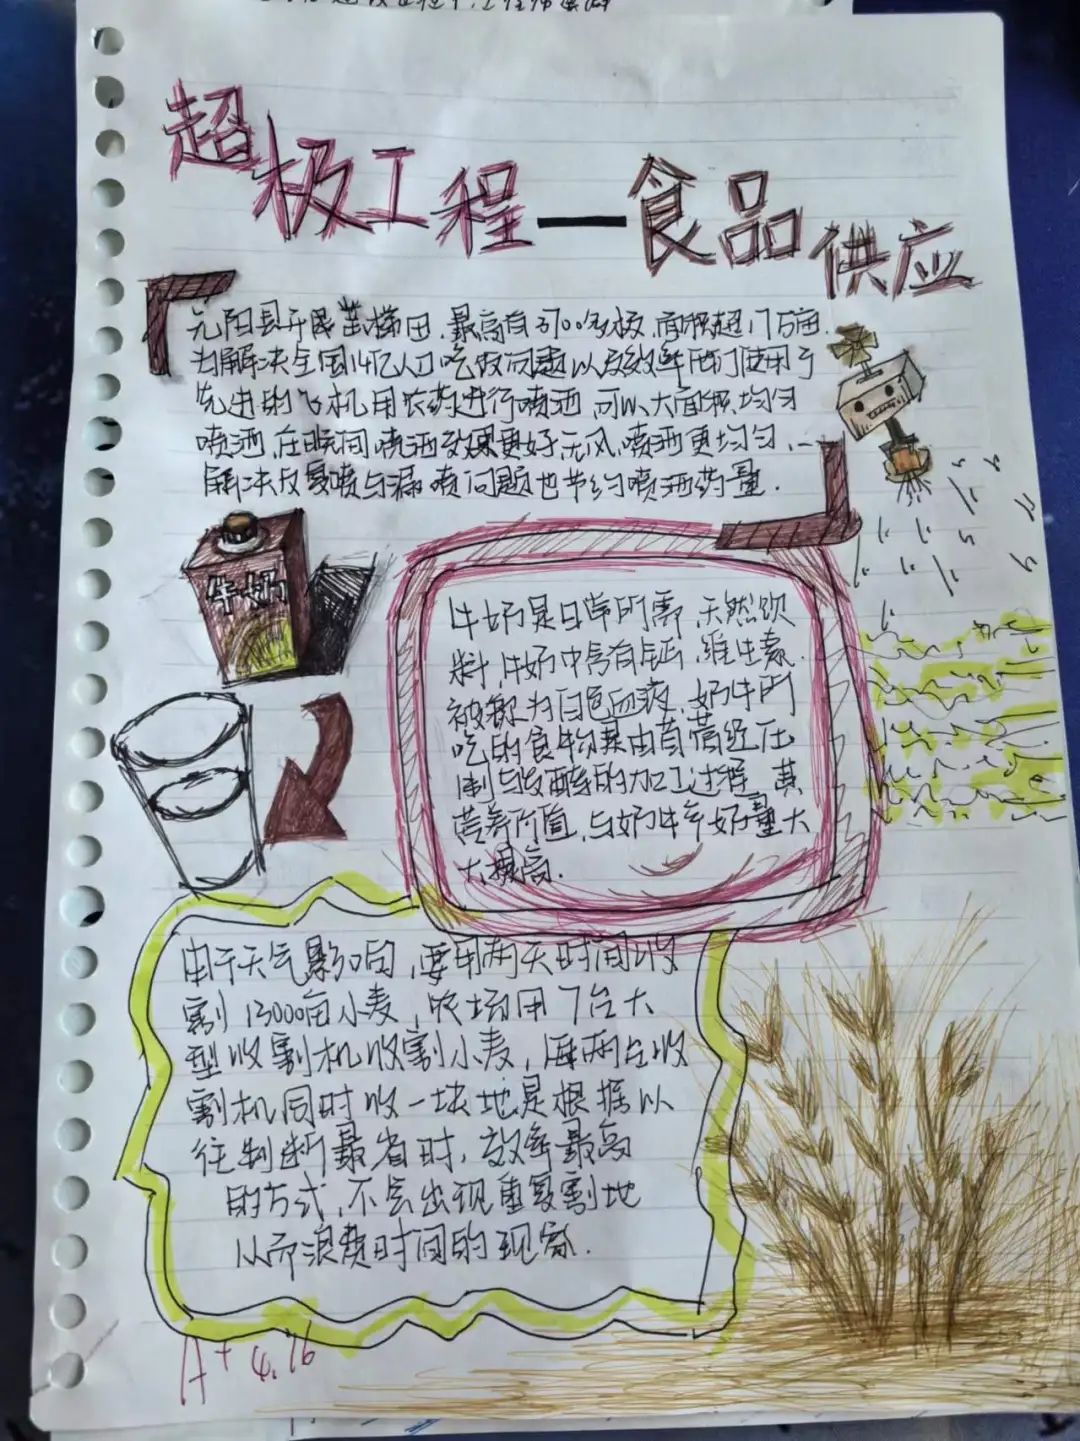 超极工程—食品供应
元阳县开民造梯田,最高有3700多极,面积超17万亩.
为解决全国14亿人口吃饭问题以及效率他们使用了
先进的飞机用农药进行喷洒,可以大面积均匀
喷洒,在晚间喷洒效果更好,无风,喷洒更均匀,
解决反复喷与漏喷问题也节约喷洒药量.
牛奶
牛奶是日常所需,天然饮
料,牛奶中含有钙,维生素.
被称为白色血液,奶牛所
吃的食物是由苜蓿经压
制与发酵的加工过程,其
营养价值,与奶牛产奶量大
大提高.
由于天气影响,要用两天时间收
割13000亩小麦,农场用7台大
型收割机收割小麦,每两台收
割机同时收一块地是根据以
往判断最省时,效率最高
的方式,不会出现重复割地
从而浪费时间的现象.
A+ 4.16